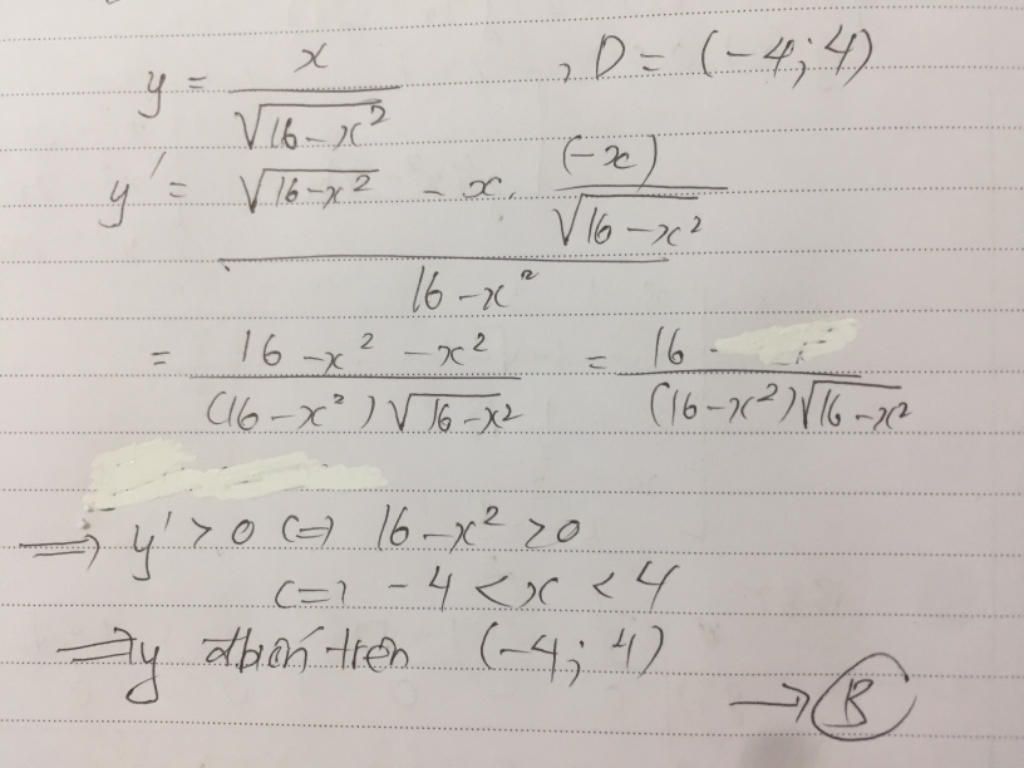 y = x / √(16-x²) , D = (-4; 4)
y' = (√(16-x²) - x. (-x) / √(16-x²)) / (16-x²)
= (16-x² -x²) / ((16-x²)√(16-x²)) = 16 / ((16-x²)√(16-x²))
→ y' > 0 <=> 16-x² > 0
<=> -4 < x < 4
=> y đbiến trên (-4; 4)
→ B